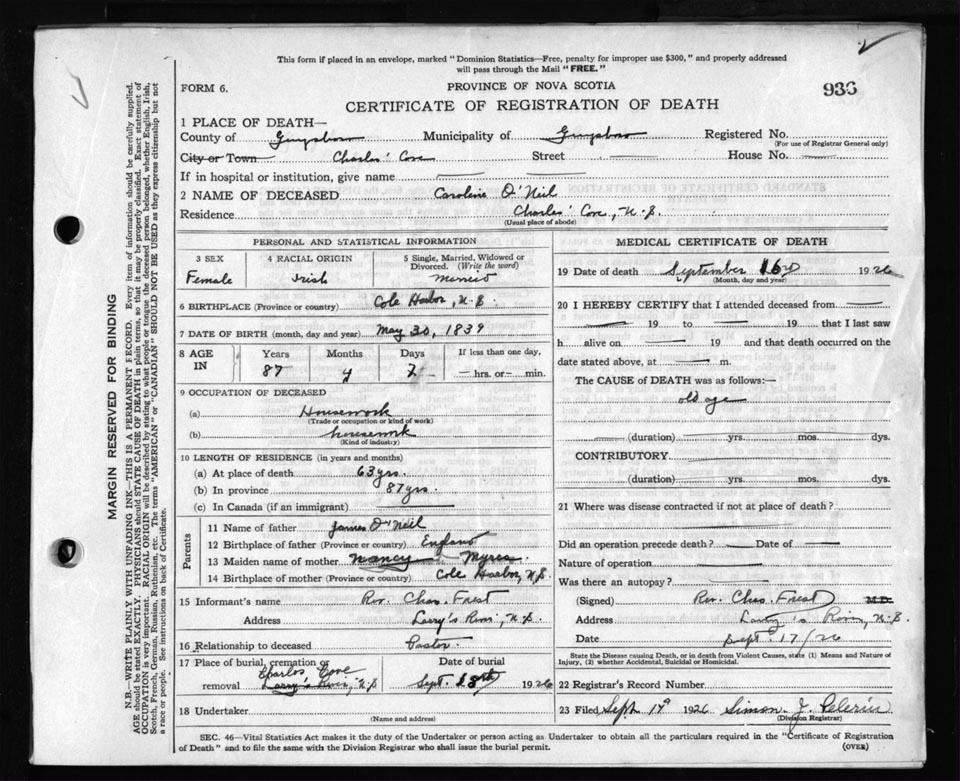 This form if placed in an envelope, marked "Dominion Statistics—Free, penalty for improper use $300," and properly addressed
will pass through the Mail "FREE."
FORM 6.
PROVINCE OF NOVA SCOTIA
936
CERTIFICATE OF REGISTRATION OF DEATH
1 PLACE OF DEATH—
County of Guysboro Municipality of Guysboro Registered No.
(For use of Registrar General only)
City or Town Charlos' Cove Street House No.
If in hospital or institution, give name
2 NAME OF DECEASED Caroline O'Neil
Residence Charlos' Cove, N.S.
(Usual place of abode)
PERSONAL AND STATISTICAL INFORMATION
3 SEX
Female
4 RACIAL ORIGIN
Irish
5 Single, Married, Widowed or
Divorced. (Write the word)
6 BIRTHPLACE (Province or country) Cole Harbor, N.S.
7 DATE OF BIRTH (month, day and year) May 30, 1839
8 AGE IN
Years Months Days If less than one day,
87 hrs. or min.
9 OCCUPATION OF DECEASED
(a) Housework
(Trade or occupation or kind of work)
(b) housework
(Kind of industry)
10 LENGTH OF RESIDENCE (in years and months)
(a) At place of death 63 yrs.
(b) In province 87 yrs.
(c) In Canada (if an immigrant)
Parents
11 Name of father James O'Neil
12 Birthplace of father (Province or country) England
13 Maiden name of mother Nancy Myres
14 Birthplace of mother (Province or country) Cole Harbor, N.S.
15 Informant's name Rev. Chas. Forest
Address Larry's River, N.S
16 Relationship to deceased Pastor
17 Place of burial, cremation or
removal Charlos Cove
Larry's River, N.S
Date of burial
Sept. 18th 1926
18 Undertaker
(Name and address)
MEDICAL CERTIFICATE OF DEATH
19 Date of death September 16 1926
(Month, day and year)
20 I HEREBY CERTIFY that I attended deceased from
19 to 19 that I last saw
h alive on 19 and that death occurred on the
date stated above, at m.
The CAUSE of DEATH was as follows:—
old age
(duration) yrs. mos. dys.
CONTRIBUTORY
(duration) yrs. mos. dys.
21 Where was disease contracted if not at place of death?
Did an operation precede death? Date of
Nature of operation
Was there an autopsy?
(Signed) Rev. Chas. Forest M.D.
Address Larry's River, N.S
Date Sept 17/26
State the Disease causing Death, or in death from Violent Causes, state (1) Means and Nature of
Injury, (2) whether Accidental, Suicidal or Homicidal.
22 Registrar's Record Number
23 Filed Sept 19 1926 Simon J. Pelerin
(Division Registrar)
SEC. 46—Vital Statistics Act makes it the duty of the Undertaker or person acting as Undertaker to obtain all the particulars required in the "Certificate of Registration
of Death" and to file the same with the Division Registrar who shall issue the burial permit.
(OVER)
MARGIN RESERVED FOR BINDING
N.B.—WRITE PLAINLY WITH UNFADING INK—THIS IS A PERMANENT RECORD. Every item of information should be carefully supplied.
AGE should be stated EXACTLY. PHYSICIANS should STATE CAUSE OF DEATH in plain terms, so that it may be properly classified. Exact statement of
OCCUPATION is very important. RACIAL ORIGIN will be described by stating to what people or tongue the deceased person belonged, whether English, Irish,
Scotch, French, German, Russian, Ruthenian, etc. The terms "AMERICAN" or "CANADIAN" SHOULD NOT BE USED as they express citizenship but not
a race or people. See instructions on back of Certificate.